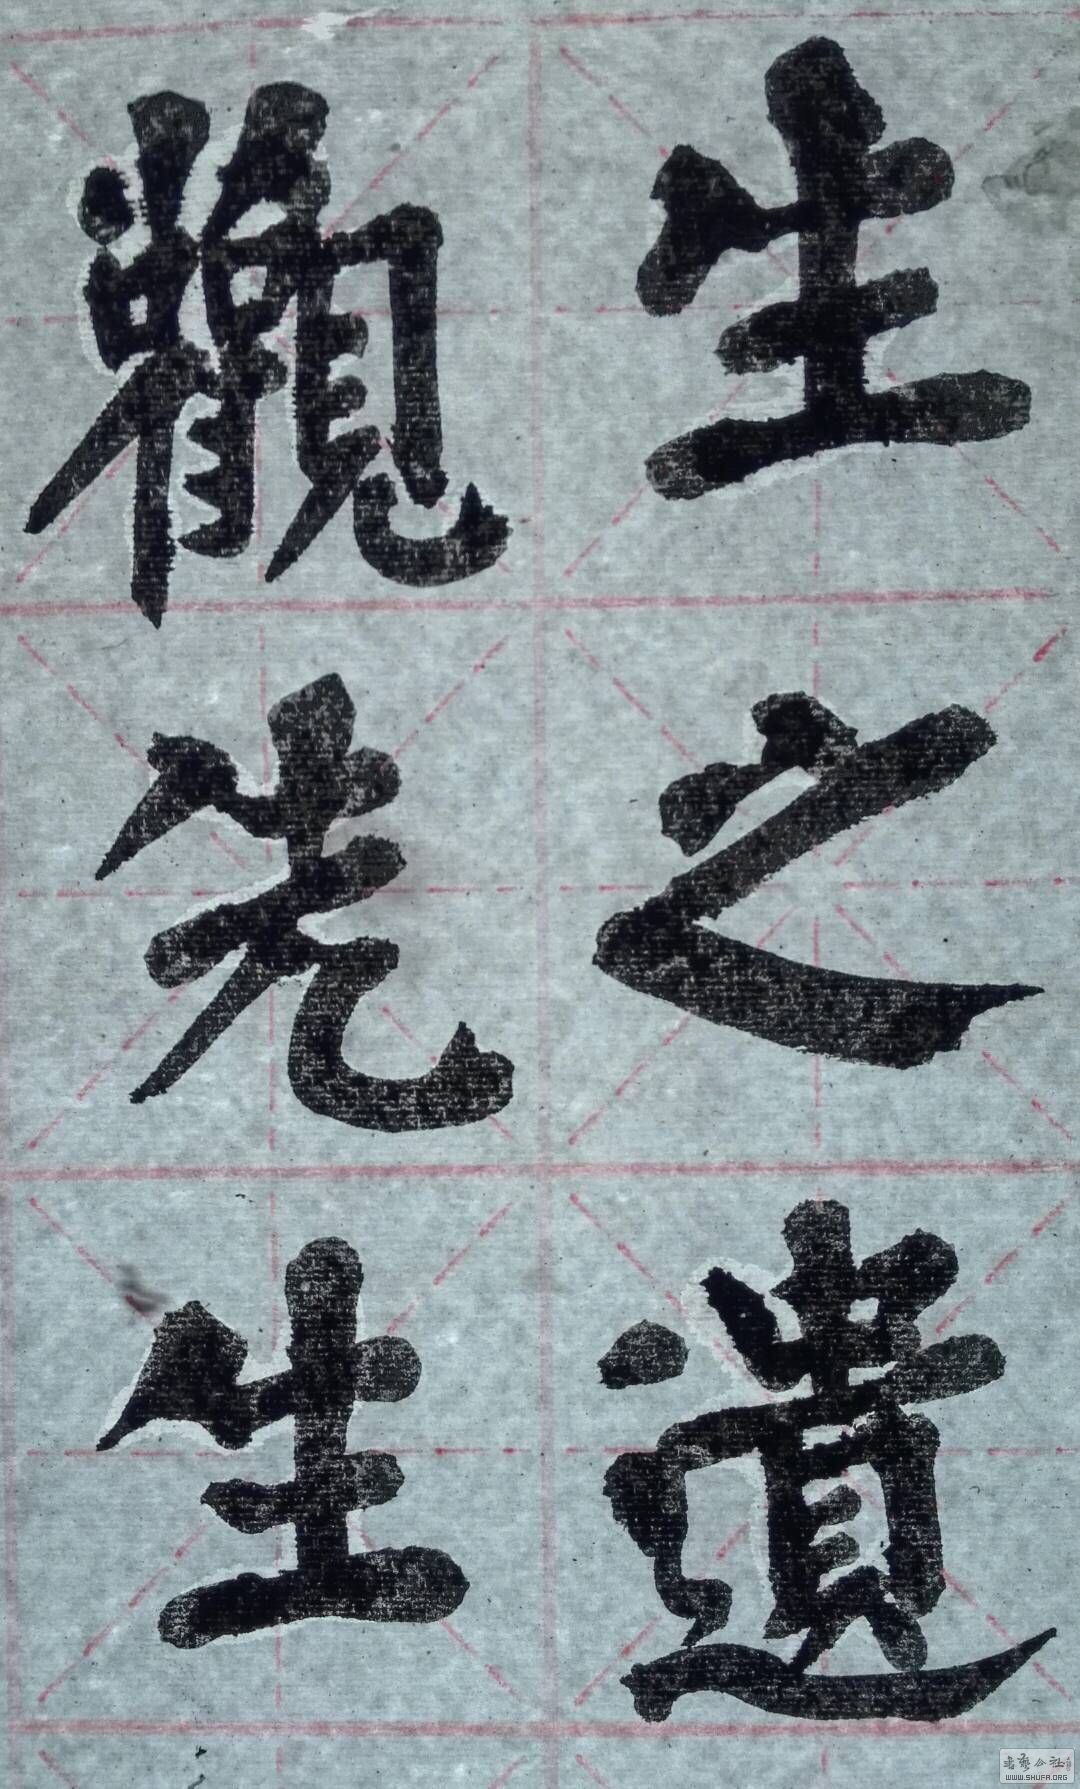 生之遺
觀先生
書法公社
WWW.SHUFA.ORG